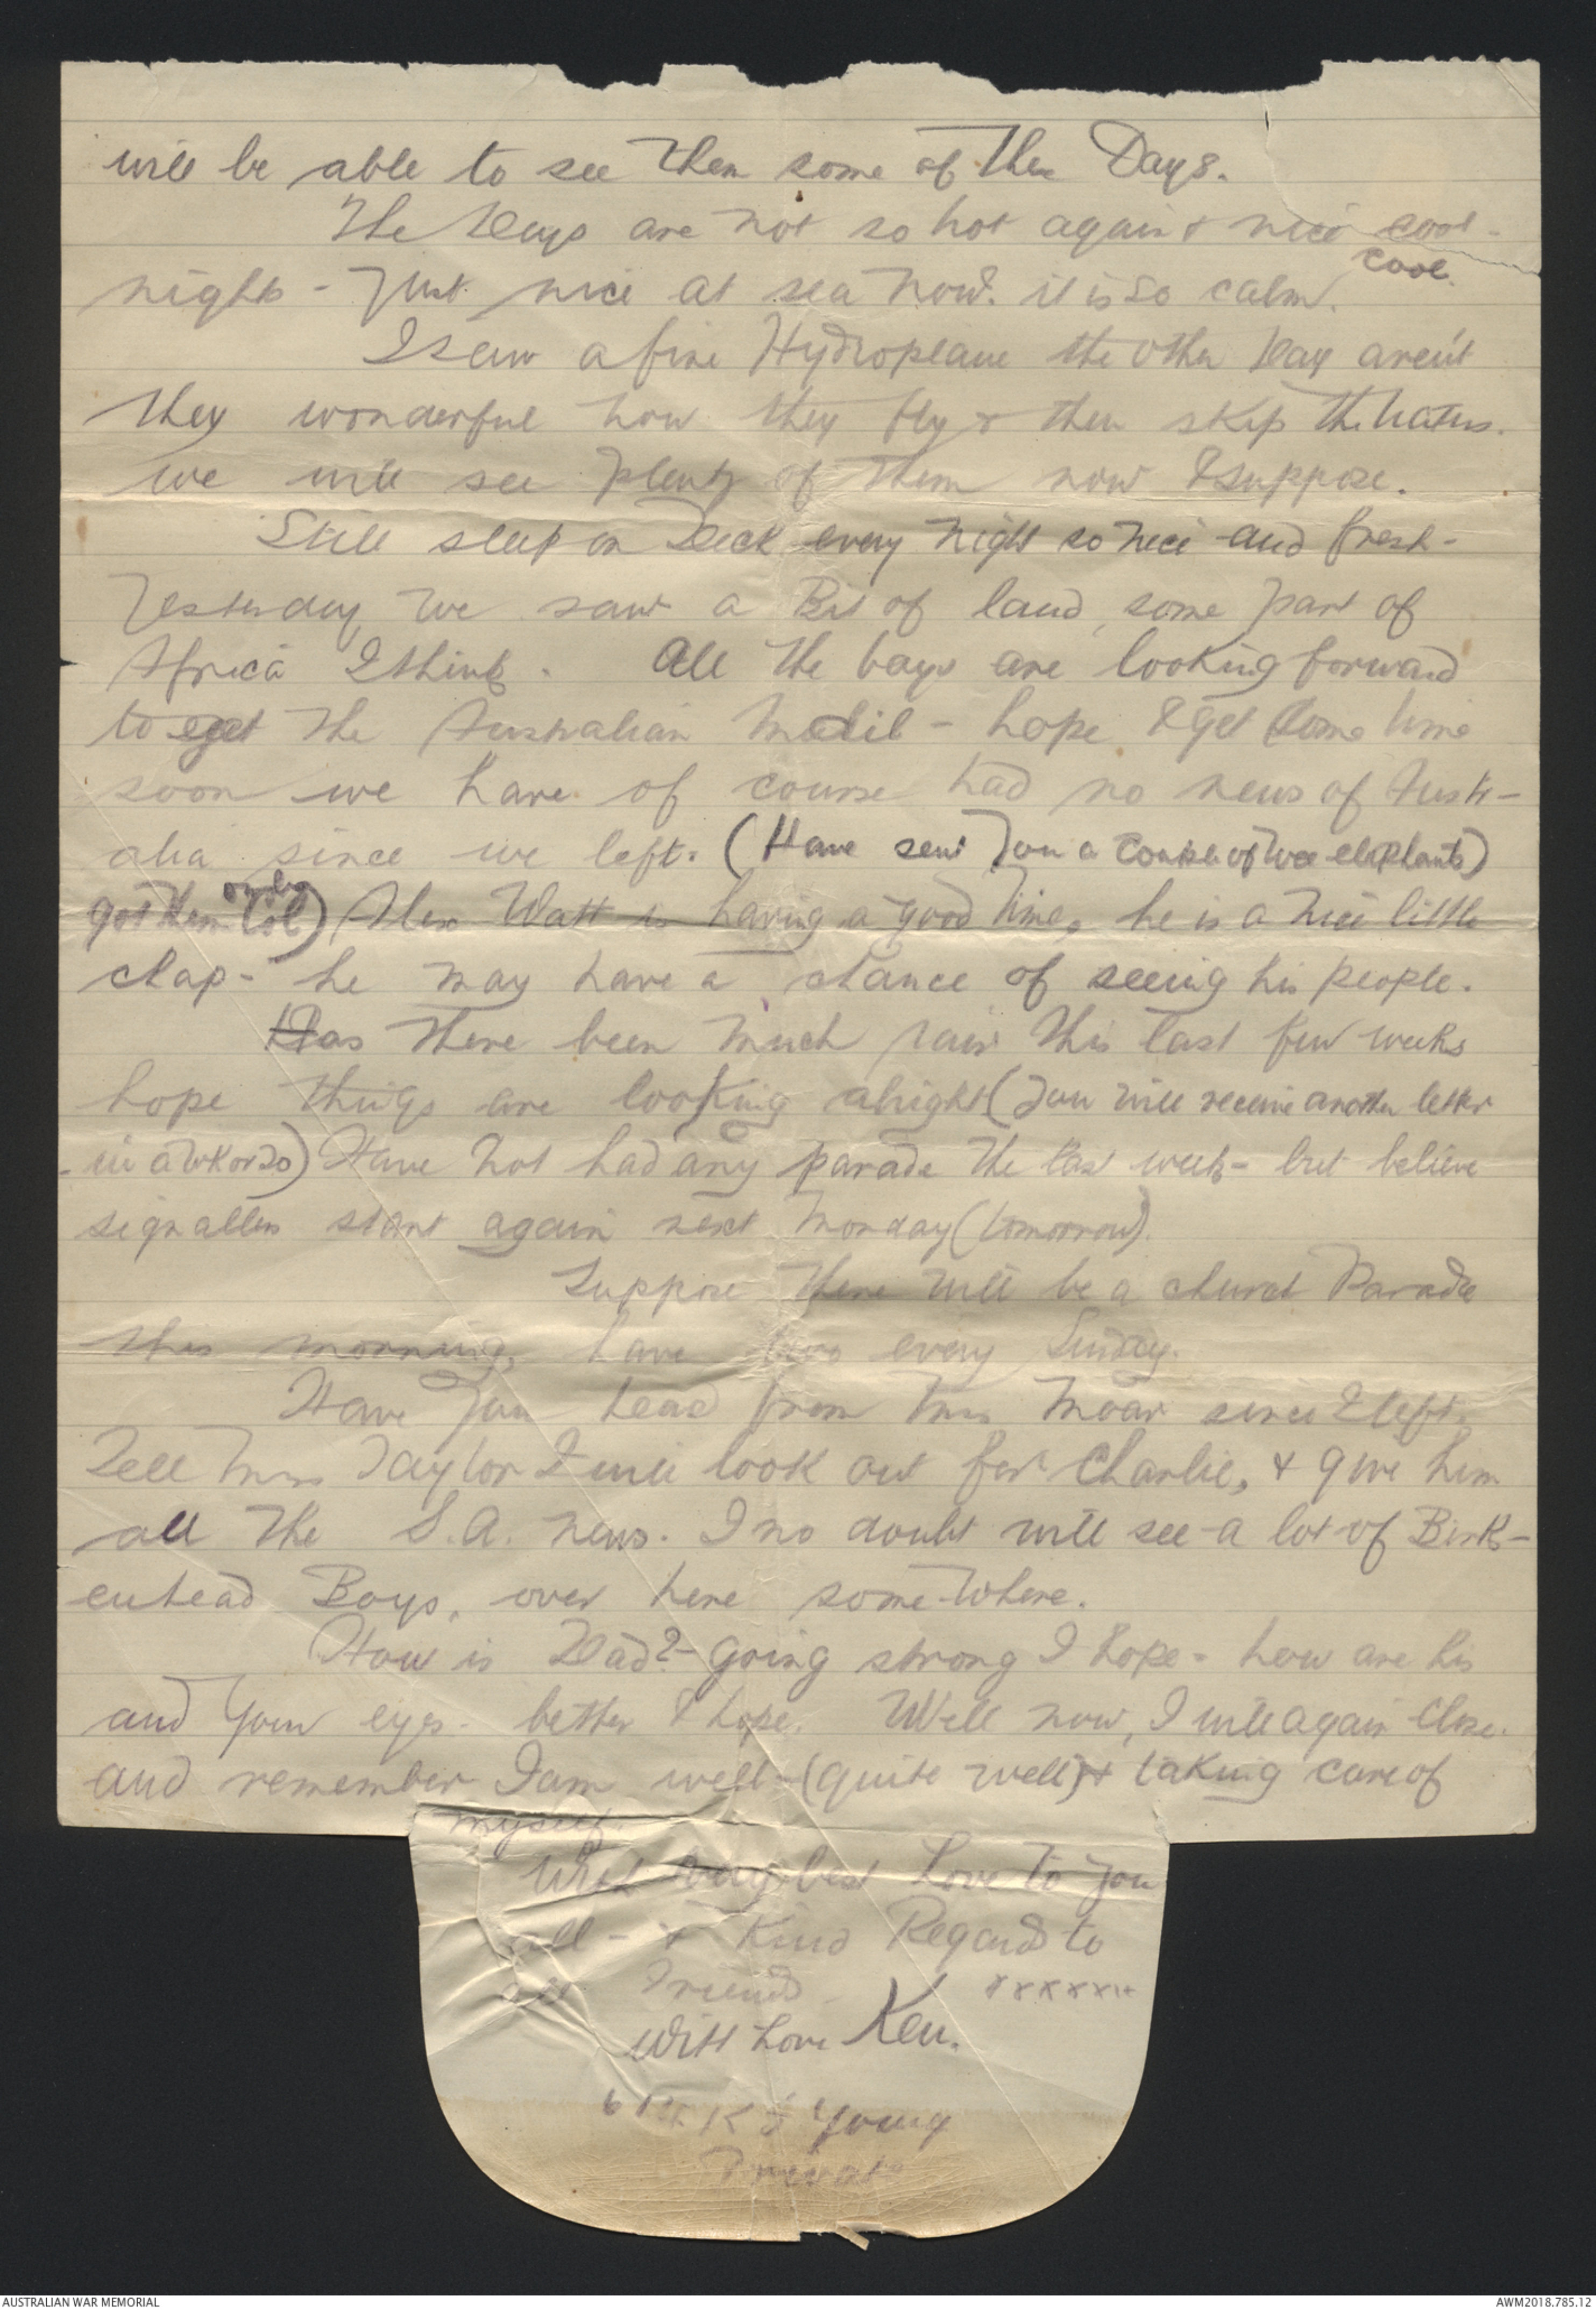 will be able to see them some of these Days.
The Days are not so hot again & nice cool
cool
nights - Just nice at sea now. it is so calm.
I saw a fine Hydroplane the other Day aren't
they wonderful how they fly & then skip the waters.
we will see plenty of them now I suppose.
Still sleep on Deck every night so nice and fresh -
Yesterday we saw a Bit of land, some part of
Africa I think. All the boys are looking forward
to get the Australian Mail - hope I get some time
soon we have of course had no news of Austr-
alia since we left. (Have sent you a couple of wee elephants)
got them Col) Alex Watt is having a good time, he is a nice little
chap - he may have a chance of seeing his people.
Has there been much rain this last few weeks
hope things are looking alright (you will receive another letter
in a wk or so) Have not had any parade the last week - but believe
signallers start again next Monday (tomorrow).
Suppose there will be a church Parade
this morning, have two every Sunday.
Have you heard from Mrs Moar since I left.
Tell Mrs Taylor I will look out for Charlie, & give him
all the S.A. news. I no doubt will see a lot of Birk-
enhead Boys, over here somewhere.
How is Dad? - going strong I hope - how are his
and your eyes - better I hope. Well now, I will again close.
and remember I am well - (quite well) & taking care of
myself.
With very best Love to you
all - & Kind Regards to
all Friends xxxxxx
With Love Ken.
K Young
Private